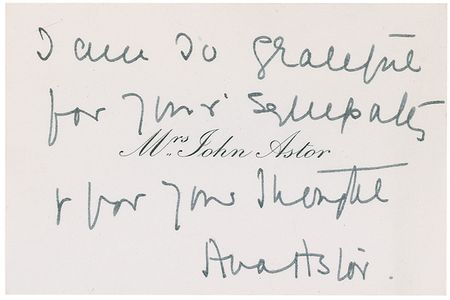 I am so grateful
for your sympathy
Mrs John Astor
& for your thought
Ava Astor.